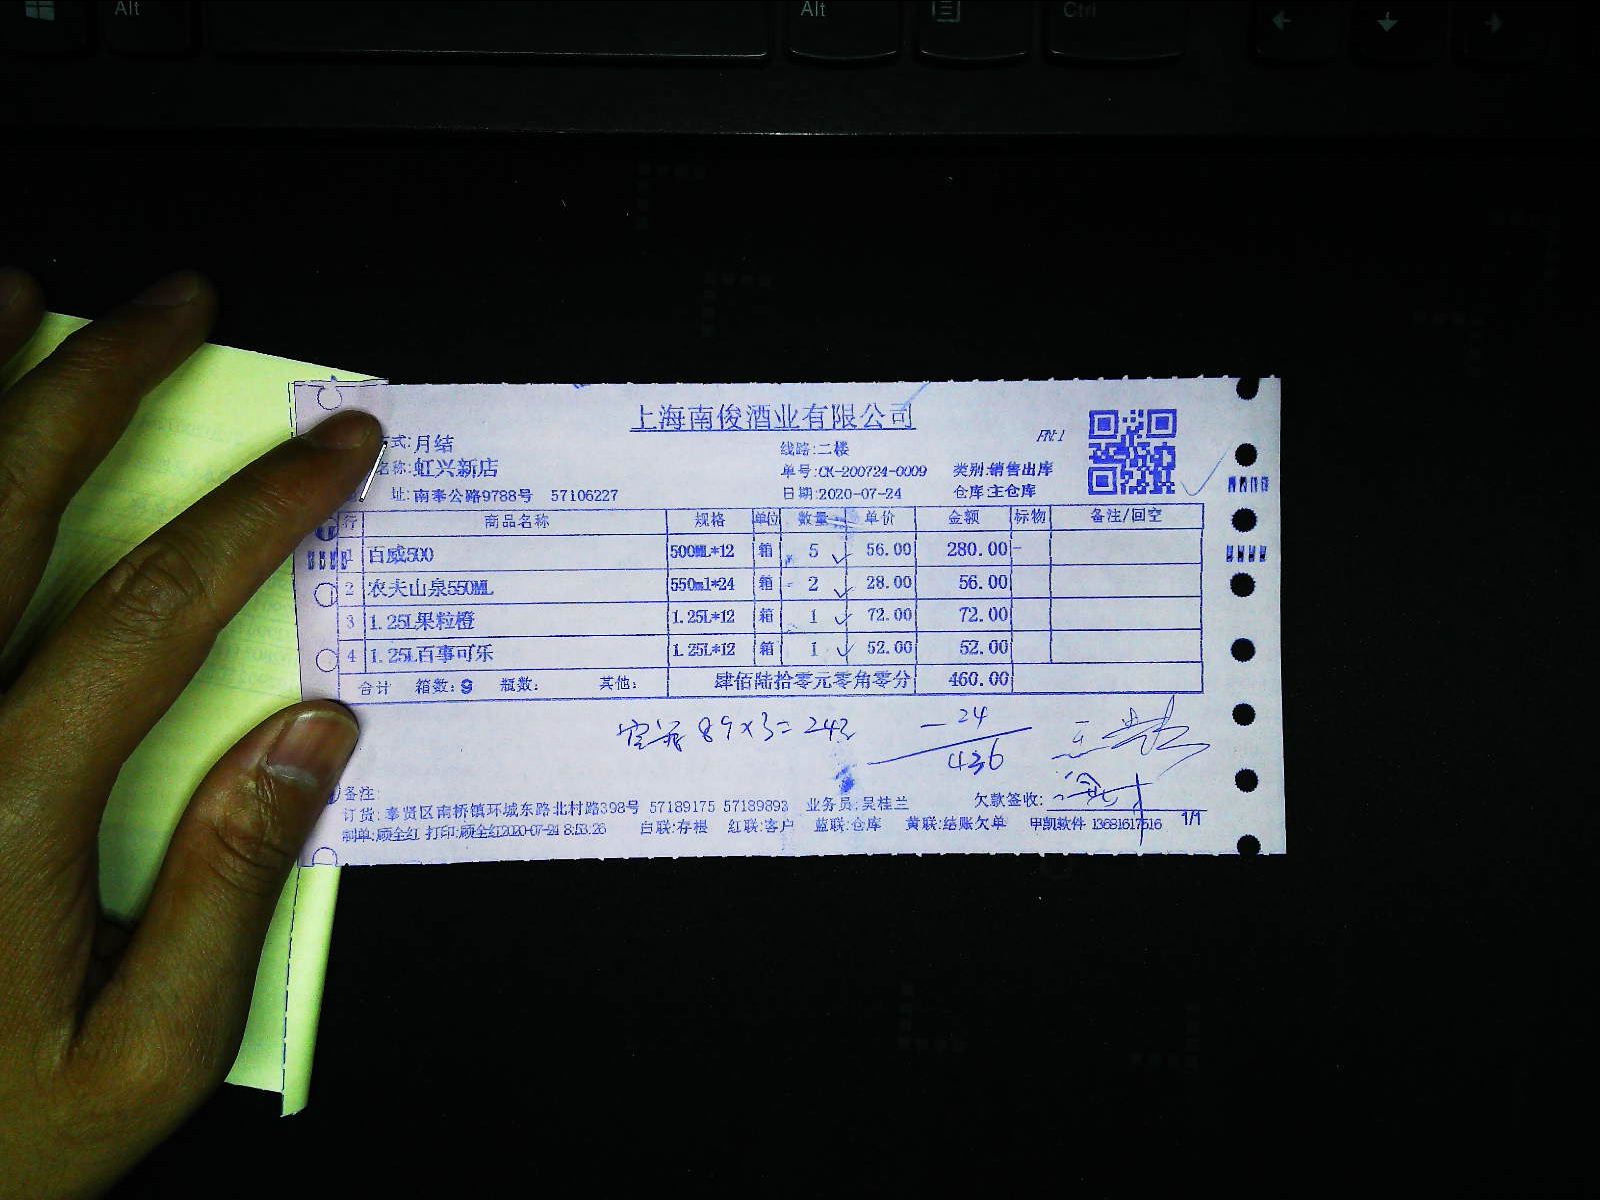 Alt Alt Ctrl
上海南俊酒业有限公司
式:月结 线路:二楼 PN:1
名称:虹兴新店 单号:CK-200724-0009 类别:销售出库
址:南奉公路9788号 57106227 日期:2020-07-24 仓库:主仓库
行 商品名称 规格 单位 数量 单价 金额 标物 备注/回空
1 百威500 500ML*12 箱 5 56.00 280.00
2 农夫山泉550ML 550ml*24 箱 2 28.00 56.00
3 1.25L果粒橙 1.25L*12 箱 1 72.00 72.00
4 1.25L百事可乐 1.25L*12 箱 1 52.00 52.00
合计 箱数:9 瓶数: 其他: 肆佰陆拾零元零角零分 460.00
89×3= -24
436
备注:
订货:奉贤区南桥镇环城东路北村路398号 57189175 57189893 业务员:吴桂兰 欠款签收:
制单:顾全红 打印:顾全红2020-07-24 8:53:26 白联:存根 红联:客户 蓝联:仓库 黄联:结账欠单 甲凯软件 13681617516 1/1